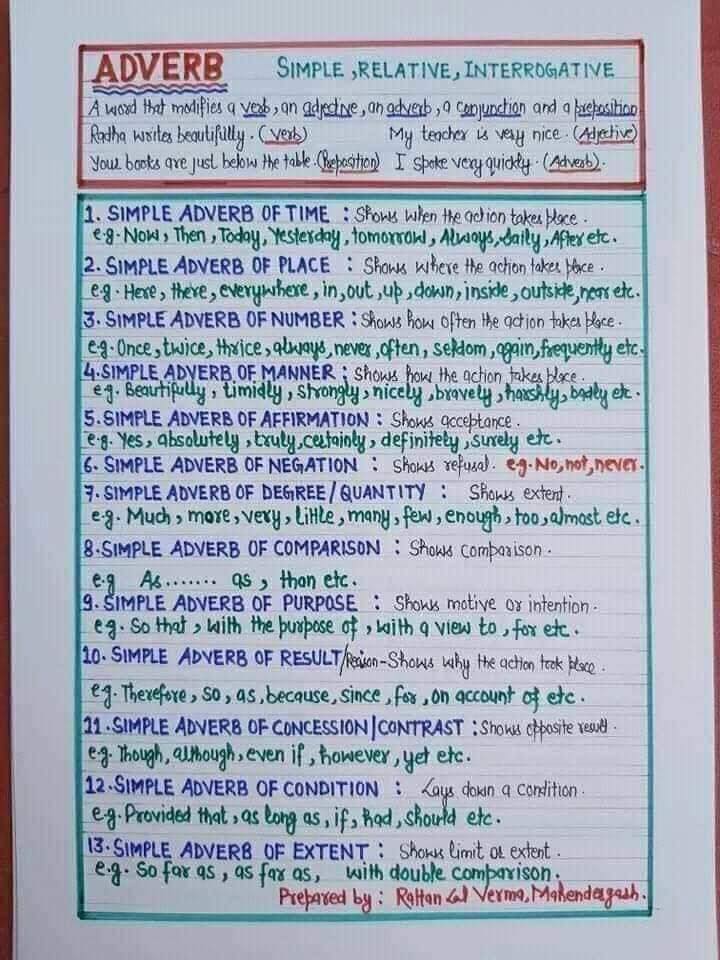 ADVERB SIMPLE, RELATIVE, INTERROGATIVE
A word that modifies a verb, an adjective, an adverb, a conjunction and a preposition
Radha writes beautifully. (Verb) My teacher is very nice. (Adjective)
Your books are just below the table. (Preposition) I spoke very quickly. (Adverb).
1. SIMPLE ADVERB OF TIME : Shows when the action takes place.
e.g. Now, Then, Today, Yesterday, tomorrow, Always, daily, After etc.
2. SIMPLE ADVERB OF PLACE : Shows where the action takes place.
e.g. Here, there, everywhere, in, out, up, down, inside, outside, near etc.
3. SIMPLE ADVERB OF NUMBER : Shows how often the action takes place.
e.g. Once, twice, thrice, always, never, often, seldom, again, frequently etc.
4. SIMPLE ADVERB OF MANNER : Shows how the action takes place.
e.g. Beautifully, timidly, strongly, nicely, bravely, harshly, badly etc.
5. SIMPLE ADVERB OF AFFIRMATION : Shows acceptance.
e.g. Yes, absolutely, truly, certainly, definitely, surely etc.
6. SIMPLE ADVERB OF NEGATION : Shows refusal. e.g. No, not, never.
7. SIMPLE ADVERB OF DEGREE/QUANTITY : Shows extent.
e.g. Much, more, very, little, many, few, enough, too, almost etc.
8. SIMPLE ADVERB OF COMPARISON : Shows comparison.
e.g As....... as, than etc.
9. SIMPLE ADVERB OF PURPOSE : Shows motive or intention.
e.g. So that, with the purpose of, with a view to, for etc.
10. SIMPLE ADVERB OF RESULT/Reason-Shows why the action took place.
e.g. Therefore, so, as, because, since, for, on account of etc.
11. SIMPLE ADVERB OF CONCESSION/CONTRAST : Shows opposite result.
e.g. Though, although, even if, however, yet etc.
12. SIMPLE ADVERB OF CONDITION : Lays down a condition.
e.g. Provided that, as long as, if, had, should etc.
13. SIMPLE ADVERB OF EXTENT : Shows limit or extent.
e.g. So far as, as far as, with double comparison.
Prepared by : Rattan Lal Verma, Mahendergarh.